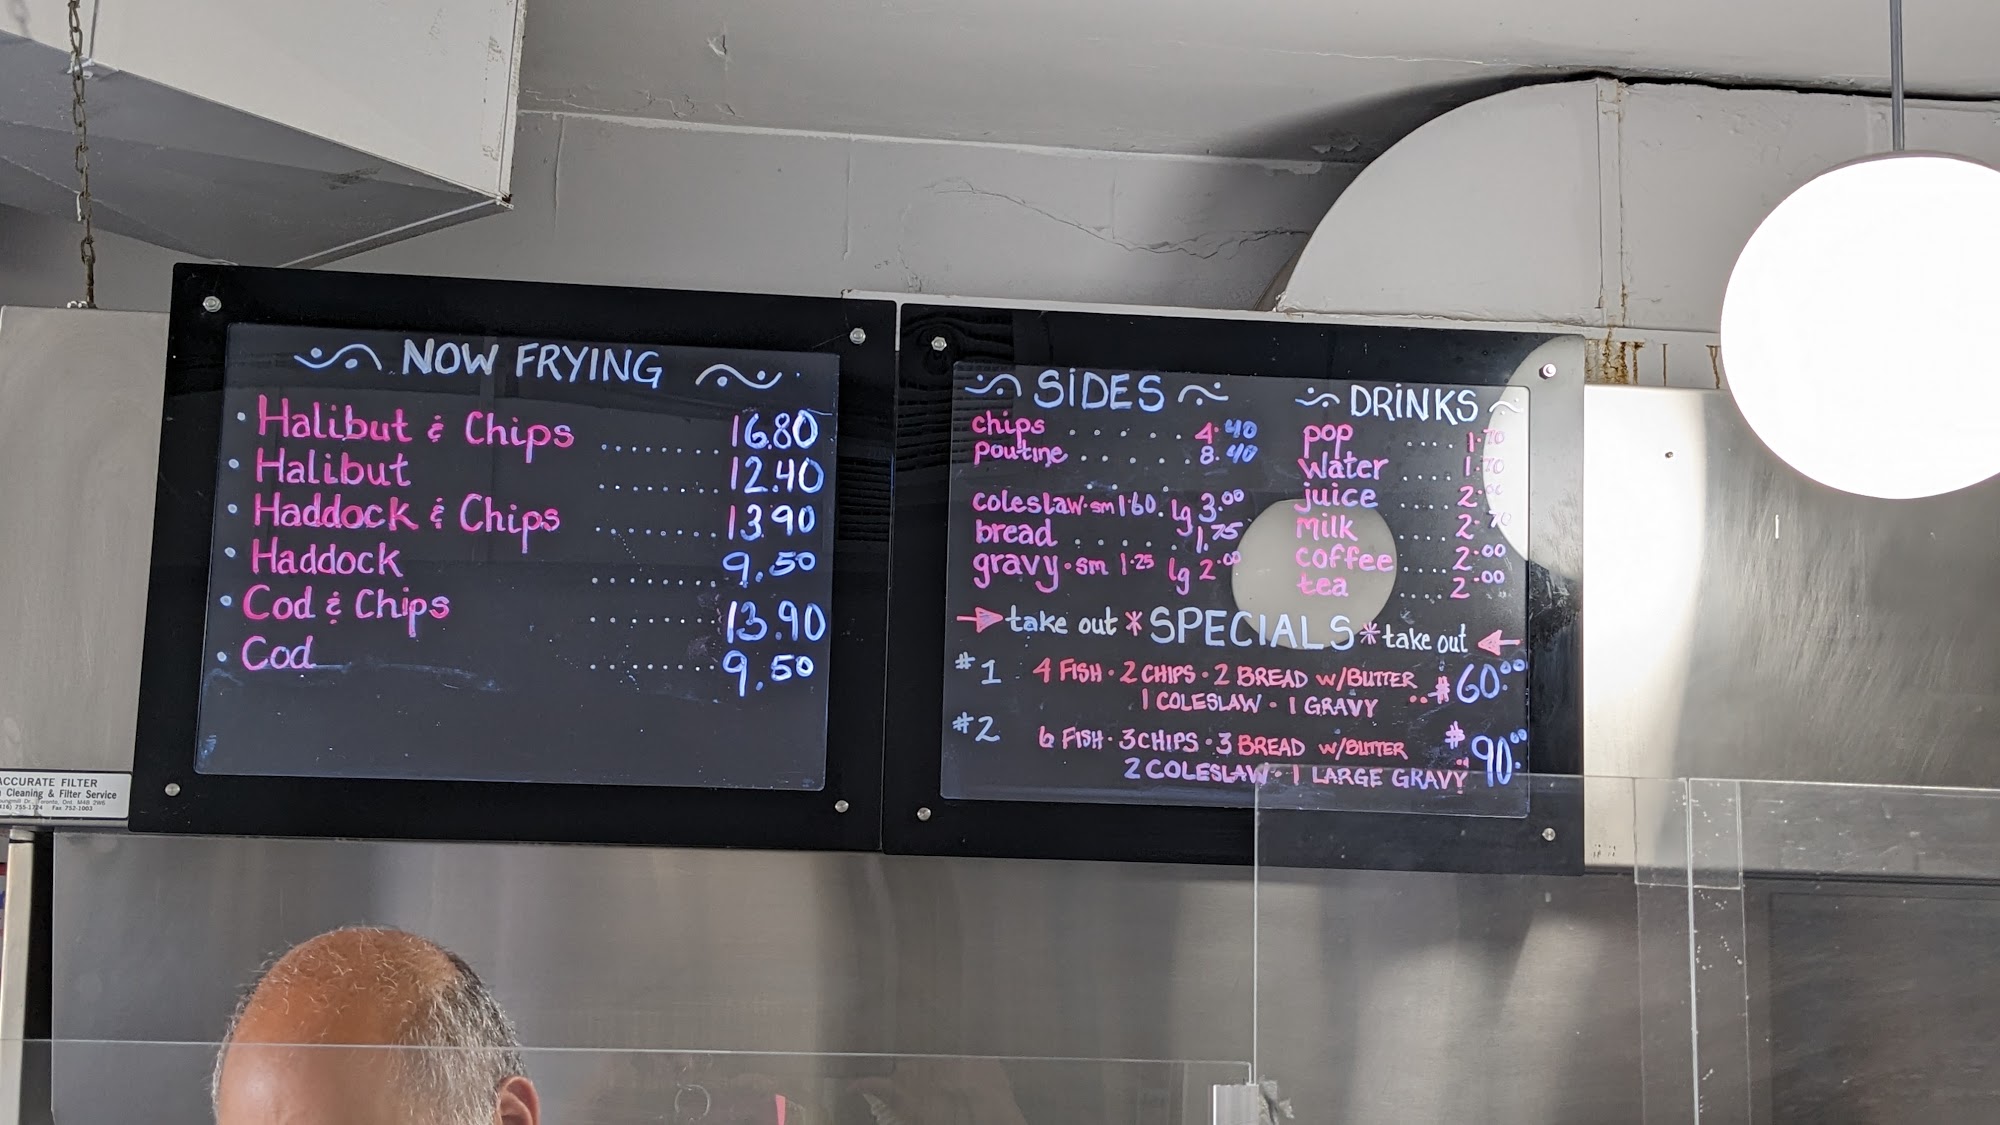 NOW FRYING
• Halibut & Chips ....... 16.80
• Halibut ....... 12.40
• Haddock & Chips ....... 13.90
• Haddock ....... 9.50
• Cod & Chips ....... 13.90
• Cod ....... 9.50
SIDES
chips ..... 4.40
poutine ..... 8.40
coleslaw·sm 1.60. lg 3.00
bread ..... 1.75
gravy·sm 1.25 lg 2.00
DRINKS
pop .... 1.70
water .... 1.70
juice .... 2.00
milk .... 2.70
coffee .... 2.00
tea .... 2.00
→ take out * SPECIALS * take out ←
#1 4 FISH · 2 CHIPS · 2 BREAD W/BUTTER
1 COLESLAW · 1 GRAVY .. $60.00
#2 6 FISH · 3 CHIPS · 3 BREAD W/BUTTER
2 COLESLAW · 1 LARGE GRAVY .. $90.00
ACCURATE FILTER
Cleaning & Filter Service
Toronto, Ont. M4B 2W6
Fax 752-1003